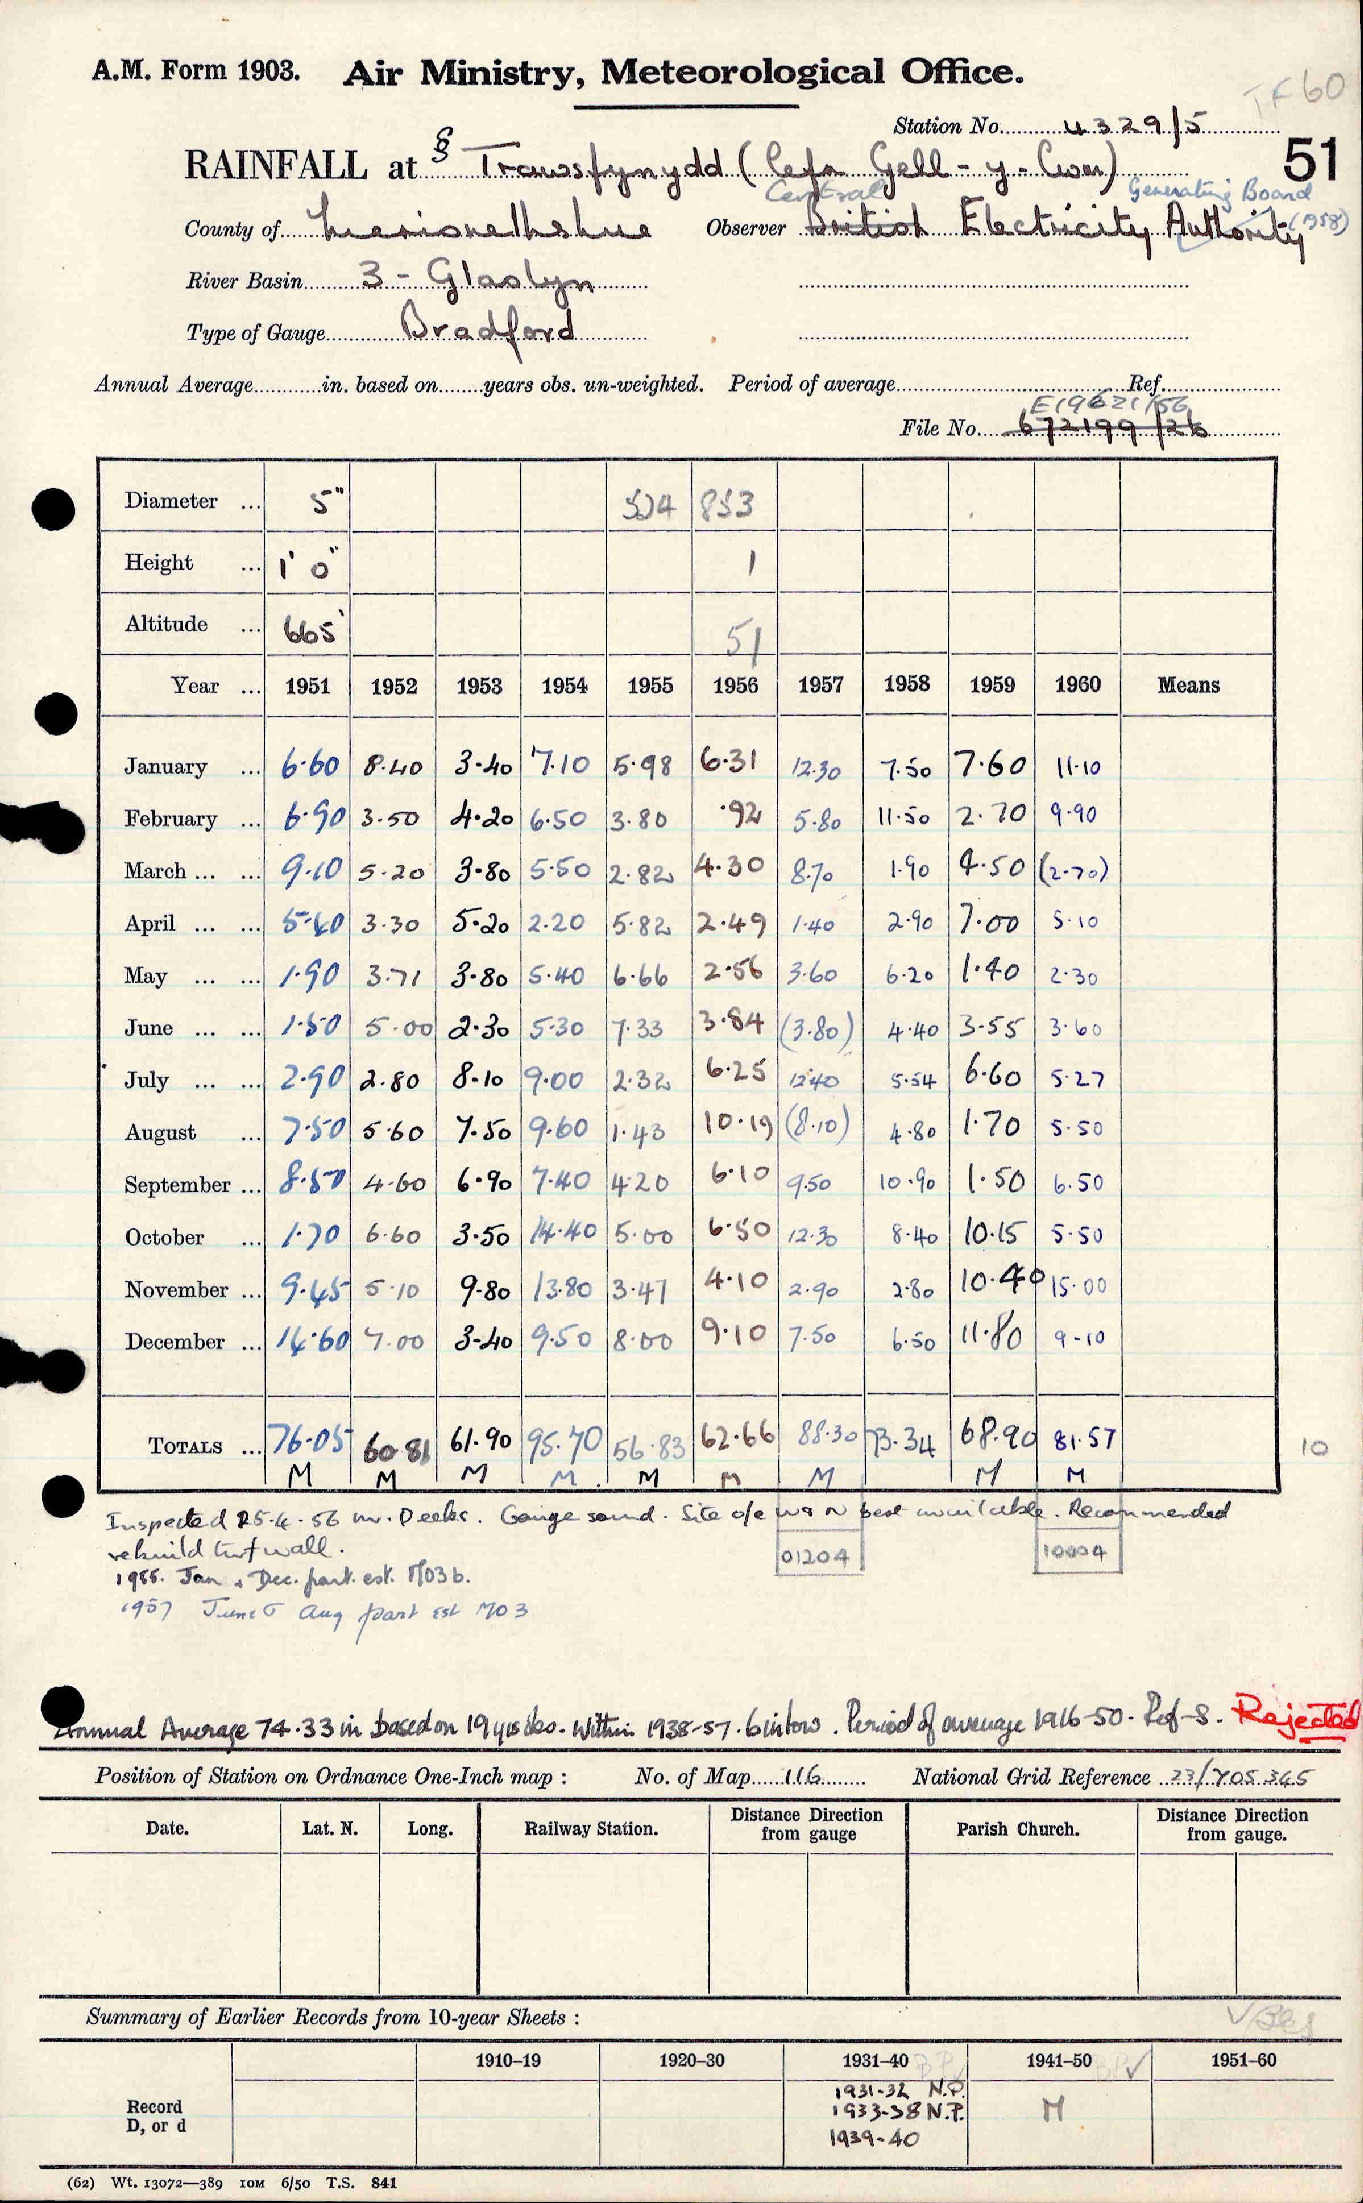 A.M. Form 1903. Air Ministry, Meteorological Office.
TF 60
Station No. 4329/5
51
RAINFALL at § Trawsfynydd (Cefn Gell-y-Cwm)
Central Generating Board (1958)
County of Merionethshire Observer British Electricity Authority
River Basin 3 - Glaslyn
Type of Gauge Bradford
Annual Average in. based on years obs. un-weighted. Period of average Ref.
E19621/56
File No. 672199/26
Diameter ... 5" 524 853
Height ... 1' 0" 1
Altitude ... 665' 51
Year ... 1951 1952 1953 1954 1955 1956 1957 1958 1959 1960 Means
January ... 6.60 8.40 3.40 7.10 5.98 6.31 12.30 7.50 7.60 11.10
February ... 6.90 3.50 4.20 6.50 3.80 .92 5.80 11.50 2.70 9.90
March ... ... 9.10 5.20 3.80 5.50 2.82 4.30 8.70 1.90 4.50 (2.70)
April ... ... 5.40 3.30 5.20 2.20 5.82 2.49 1.40 2.90 7.00 5.10
May ... ... 1.90 3.71 3.80 5.40 6.66 2.56 3.60 6.20 1.40 2.30
June ... ... 1.50 5.00 2.30 5.30 7.33 3.84 (3.80) 4.40 3.55 3.60
July ... ... 2.90 2.80 8.10 9.00 2.32 6.25 12.40 5.54 6.60 5.27
August ... 7.50 5.60 7.50 9.60 1.43 10.19 (8.10) 4.80 1.70 5.50
September ... 8.50 4.60 6.90 7.40 4.20 6.10 9.50 10.90 1.50 6.50
October ... 1.70 6.60 3.50 14.40 5.00 6.50 12.30 8.40 10.15 5.50
November ... 9.45 5.10 9.80 13.80 3.47 4.10 2.90 2.80 10.40 15.00
December ... 14.60 7.00 3.40 9.50 8.00 9.10 7.50 6.50 11.80 9.10
TOTALS ... 76.05 60.81 61.90 95.70 56.83 62.66 88.30 73.34 68.90 81.57
10
M M M M M M M M M
Inspected 25.4.56 Mr. Deeks. Gauge sound. Site o/e W & N best available. Recommended
rebuild turf wall.
01204 10004
1955. Jan & Dec. part. est. MO3b.
1957 June & Aug part est MO3
Annual Average 74.33 in based on 19 yrs obs. Within 1938-57. 6 in tow. Period of average 1916-50. Ref-S. Rejected
Position of Station on Ordnance One-Inch map : No. of Map 116 National Grid Reference 23/705345
Date. Lat. N. Long. Railway Station. Distance Direction from gauge Parish Church. Distance Direction from gauge.
Summary of Earlier Records from 10-year Sheets :
1910–19 1920–30 1931–40 1941–50 1951–60
Record D, or d
1931-32 N.P.
1933-38 N.P.
1939-40
M
(62) Wt. 13072—389 10M 6/50 T.S. 841